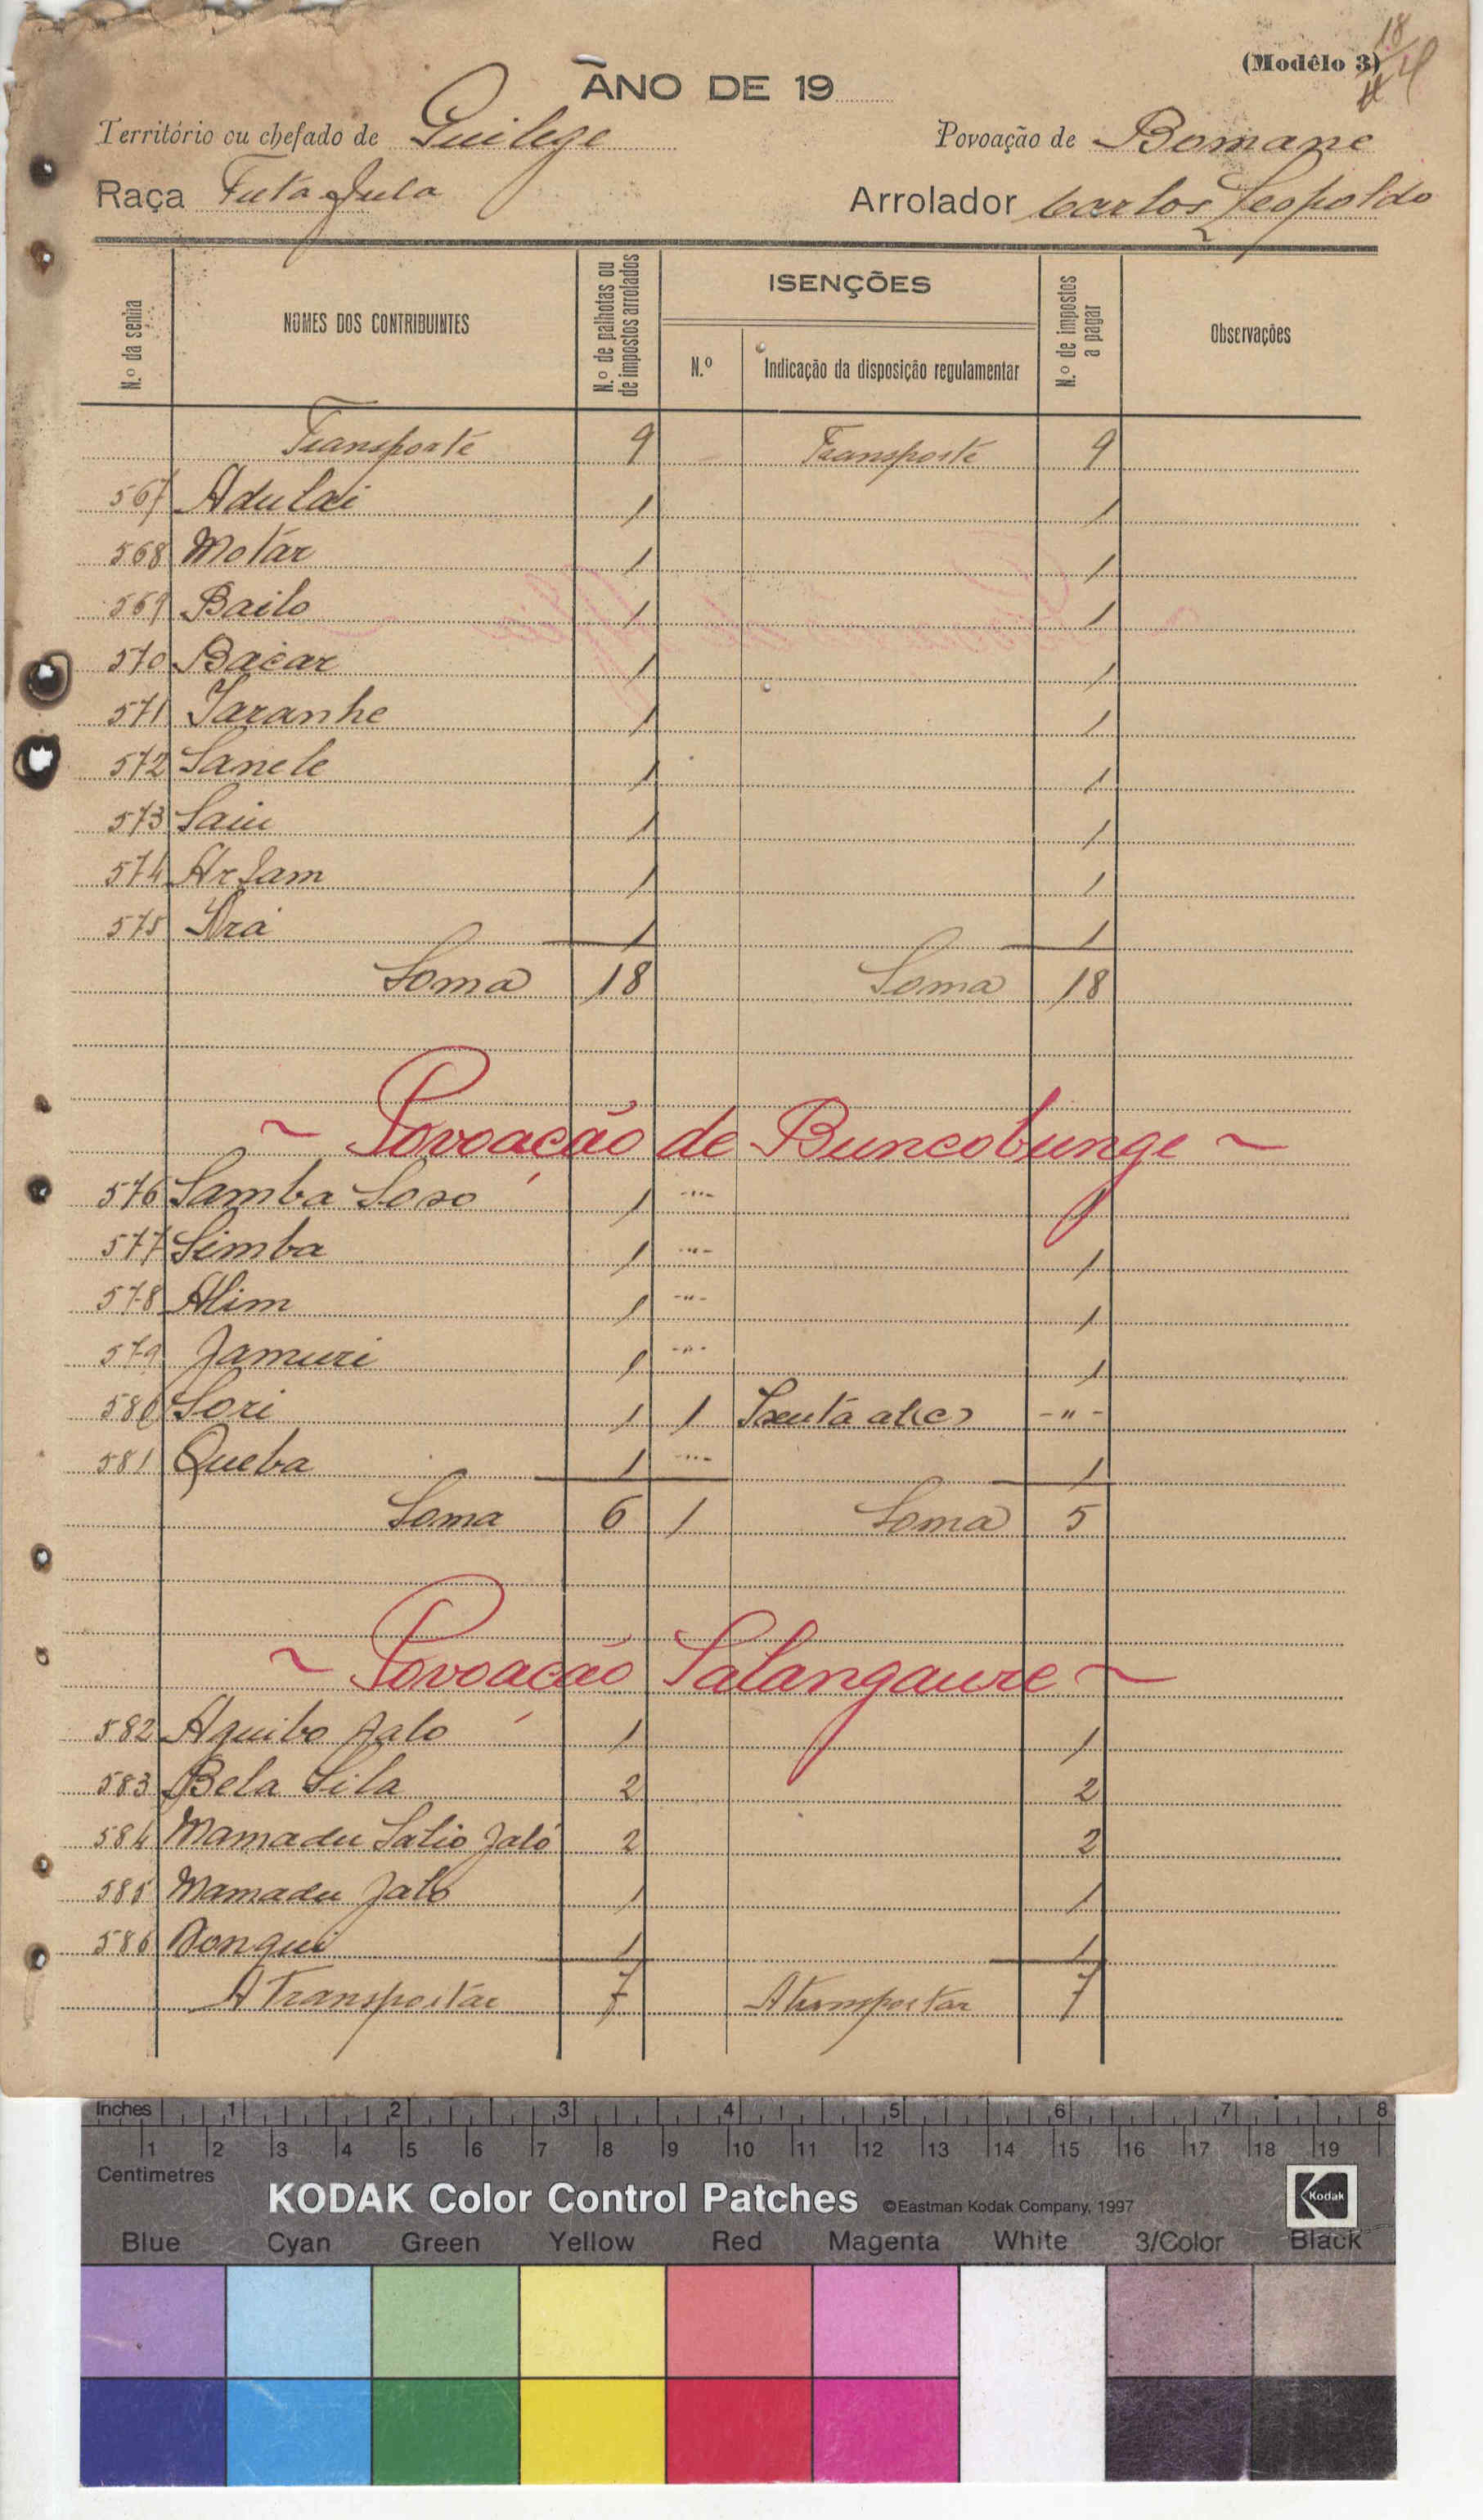 (Modêlo 3)
18
ANO DE 19
Território ou chefado de Guilege Povoação de Bomane
Raça Futa Jula Arrolador Carlos Leopoldo
N.º da senha NOMES DOS CONTRIBUINTES N.º de palhotas ou de impostos arrolados ISENÇÕES N.º de impostos a pagar Observações
N.º Indicação da disposição regulamentar
Transporte 9 Transporte 9
567 Adulai 1 1
568 Motar 1 1
569 Bailo 1 1
570 Bacar 1 1
571 Taranhe 1 1
572 Sanele 1 1
573 Saiu 1 1
574 Arfam 1 1
575 Ará 1 1
Soma 18 Soma 18
~ Povoação de Buncobunge ~
576 Samba Soso 1 -"- 1
577 Simba 1 -"- 1
578 Alim 1 -"- 1
579 Jamuri 1 -"- 1
580 Sori 1 1 Isenta al(c) -"-
581 Queba 1 -"- 1
Soma 6 1 Soma 5
~ Povoação Salangaure ~
582 Aguibo Jalo 1 1
583 Bela Sila 2 2
584 Mamadu Salio Jaló 2 2
585 Mamadu Jalo 1 1
586 Donqui 1 1
A Transportar 7 A transportar 7
Inches 1 2 3 4 5 6 7 8
1 2 3 4 5 6 7 8 9 10 11 12 13 14 15 16 17 18 19
Centimetres
KODAK Color Control Patches ©Eastman Kodak Company, 1997 Kodak
Blue Cyan Green Yellow Red Magenta White 3/Color Black